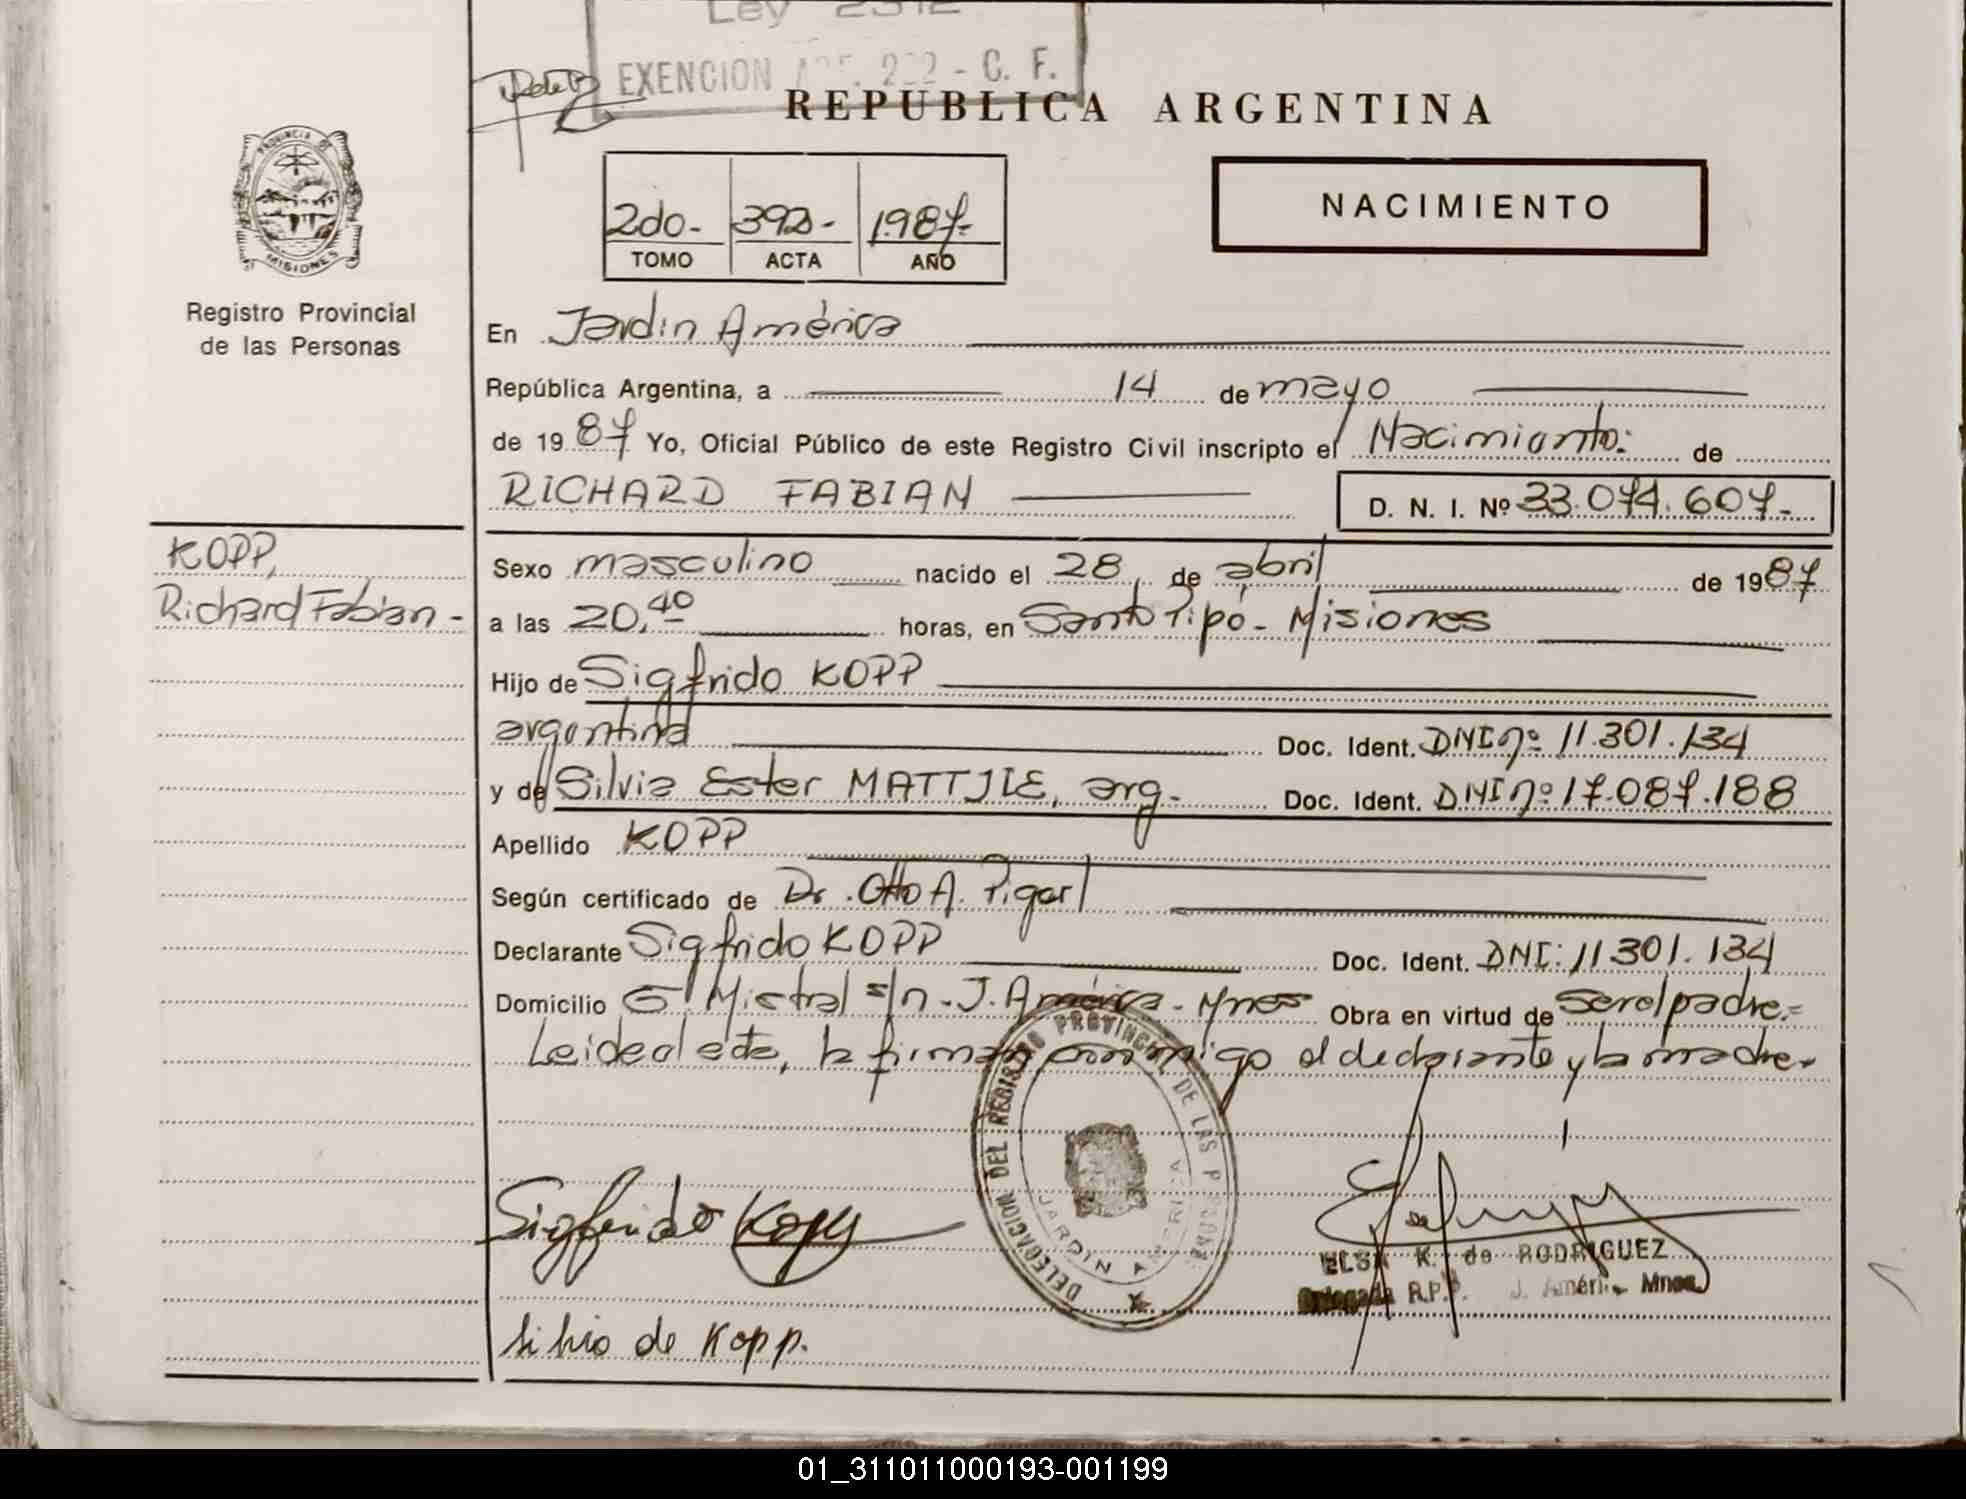 Ley 2312
EXENCION ART. 2 2 - C. F.
REPUBLICA ARGENTINA
PROVINCIA DE
MISIONES
Registro Provincial
de las Personas
2do- 392- 1.987-
TOMO ACTA AÑO
NACIMIENTO
En Jardin América
República Argentina, a 14 de mayo
de 1987 Yo, Oficial Público de este Registro Civil inscripto el Nacimiento: de
RICHARD FABIAN D. N. I. Nº 33.074.607-
KOPP,
Richard Fabian -
Sexo masculino nacido el 28 de abril de 1987
a las 20,40 horas, en Santo Pipó - Misiones
Hijo de Sigfrido KOPP
argentina Doc. Ident. DNI nº 11.301.134
y de Silvia Ester MATTJIE, arg. Doc. Ident. DNI nº 17.087.188
Apellido KOPP
Según certificado de Dr. Otto A. Pigerl
Declarante Sigfrido KOPP Doc. Ident. DNI: 11.301.134
Domicilio G. Mistral s/n - J. América - Mnes Obra en virtud de ser el padre.=
Leida el acta, la firman conmigo el declarante y la madre.
DELEGACION DEL REGISTRO PROVINCIAL DE LAS PERSONAS
JARDIN AMERICA
Sigfrido Kopp
ELSA K. de RODRIGUEZ
Delegada R.P.P. J. América Mnes.
Silvia de Kopp.
01_311011000193-001199